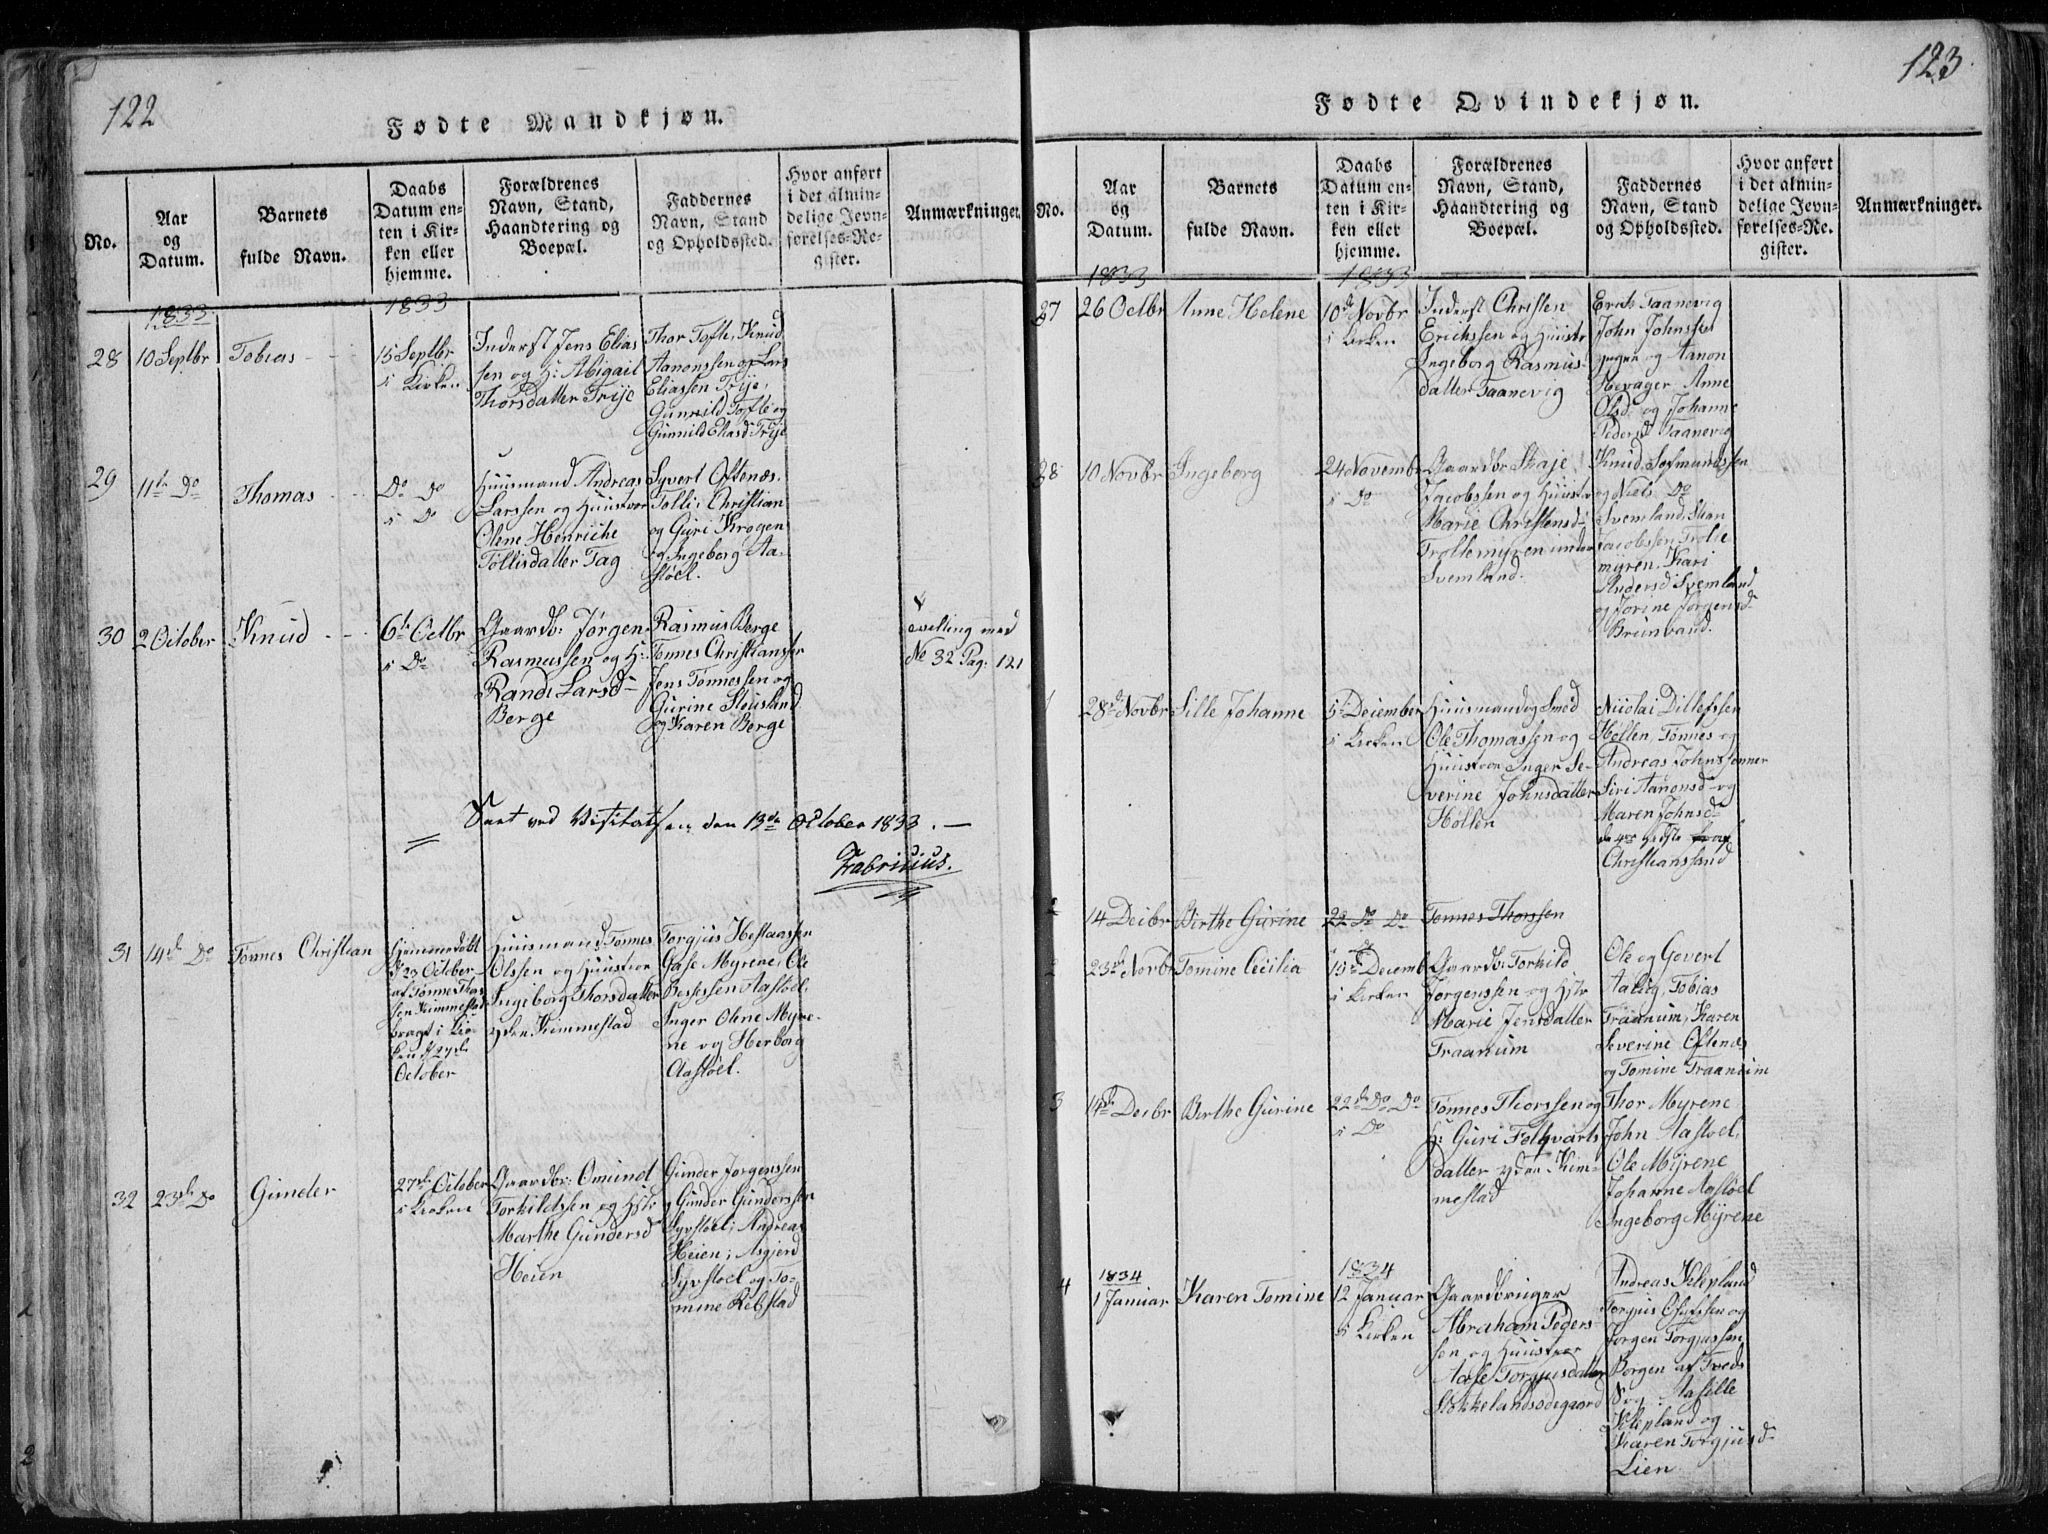 122
Fødte Mandkjøn.
No.
Aar
og
Datum.
Barnets
fulde Navn.
Daabs
Datum en-
ten i Kir-
ken eller
hjemme.
Forældrenes
Navn, Stand,
Haandtering og
Boepæl.
Faddernes
Navn, Stand
og Opholdssted.
Hvor anført
i det almin-
delige Jevn-
førelses-Re-
gister.
Anmærkninger.
1833
1833
28
10 Septbr
Tobias
15 Septbr
i Kirken
Inderst Jens Elias
sen og H: Abigail
Thorsdatter Trije
Thor Tofte, Knud
Aanonssen og Lars
Eliassen Trije,
Gunnild Tofte og
Gunnild Eliasd Trije
29
11te Do
Thomas
Do Do
i Do
Huusmand Andreas
Larssen og Huustroe
Olene Henriche
Tollisdatter Tag
Syvert Oftenæs
Tolli; Christian
og Guri Krogen
og Ingeborg Aa-
støel.
30
2 October
Knud
6te Octbr
i Do
Gaardb: Jørgen
Rasmussen og H:
Randi Larsd
Berge
Rasmus Berge
Tønnes Christianssen
Jens Tønnessen og
Gurine Stousland
og Karen Berge
tvilling med
No 32 Pag: 121
Seet ved Visitatsen den 13de October 1833.
Fabricius.
31
14de Do
Tønnes Christian
Hjemmedøbt
d 23 October
af Tønne Thos
sen Kimmestad
bragt i Kir
ken d 27de
October
Huusmand Tønnes
Olssen og Huustroe
Ingeborg Thorsdatter
yden Kimmestad
Torgjus Hestaassen
Gase Myrene, Ole
Bessessen Aastøel,
Inger Olene Myre-
ne og Herborg
Aastøel.
32
23de Do
Gunder
27de October
i Kirken
Gaardbr: Omund
Torkildssen og Hstr
Marthe Gundersd
Heien
Gunder Jørgenssen
og Gunder Gunderssen
Syvstøel; Andreas
Heien; Asgjerd
Syvstoel og To-
mine Rebstad
123
Fødte Qvindekjøn.
No.
Aar
og
Datum.
Barnets
fulde Navn.
Daabs
Datum en-
ten i Kir-
ken eller
hjemme.
Forældrenes
Navn, Stand,
Haandtering og
Boepæl.
Faddernes
Navn, Stand
og Opholdssted.
Hvor anført
i det almin-
delige Jevn-
førelses-Re-
gister.
Anmærkninger.
1833
1833
27
26 Octbr
Anne Helene
10de Novbr
i Kirken
Inderst Christen
Erichssen og Huustr
Ingeborg Rasmus-
datter Taanevig
Erich Taanevig
John Johnssen
og Aanon
Hevager, Anne
Olsd: og Johanne
Pedersd Taanevig
28
10 Novbr
Ingeborg
24 Novembr
i Do
Gaardbr Staje
Jacobssen og Huustr
Marie Christensd
Trollemyren under
Svemland.
Knud Sofmundssen
og Niels Do
Svemland, Stan
Jacobssen Trolle
myren. Kari
Andersd Svemland
og Jorine Jorgensd
Brunvand.
1
28de Novbr
Sille Johanne
5te December
i Kirken
Huusmand og Smed
Ole Thomassen og
Huustroe Inger Se-
verine Johnsdatter
Høllen
Nicolai Ditlefssen
Høllen, Tønnes og
Andreas Johnssønner
Siri Aanonsd og
Maren Johnsd
de 4re sidste
Christianssand
2
14 Decbr
Birthe Gurine
22 Do Do
Tønnes Thorssen
2
23de Novbr
Tomine Cecilia
15de Decemb
i Kirken
Gaardb: Torkild
Jørgenssen og Hstr
Marie Jensdatter
Traanum
Ole og Govert
Aalug, Tobias
Traanum, Karen
Severine Oftenæs
og Tomine Traanum
3
14de Decbr
Birthe Gurine
22de Do Do
i Do
Tønnes Thorssen og
H: Guri Folqvarts
datter yden Kim-
mestad
Thor Myrene
John Aastoel,
Ole Myrene
Johanne Aastøel
Ingeborg Myrene
4
1834
1 Januar
Karen Tomine
1834
12 Januar
i Kirken
Gaardbruger
Abraham Peders
sen og Huustroe
Aase Torgjusdatter
Stokkelandsødegaard
Andreas Klepland
Torgius Olufssen og
Jorgen Torgjussen
Borgen af Tveds
Sog: Aasille
Klepland og
Karen Torgjusd
Lien